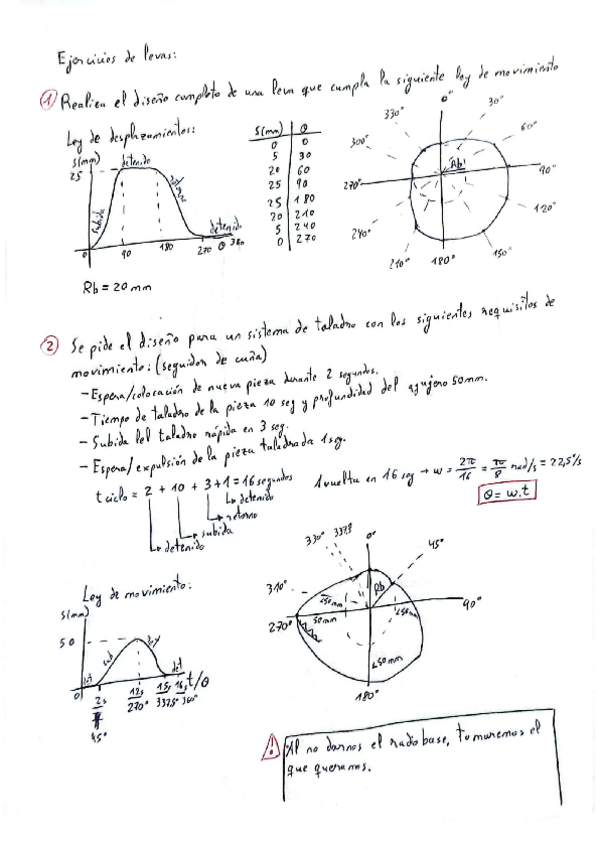 Ejercicios de levas:
① Realiza el diseño completo de una leva que cumpla la siguiente ley de movimiento
Ley de desplazamientos:
S(mm)
25
detenido
subida
retorno
detenido
0 90 180 270 θ 360
Rb = 20 mm
S(mm) θ
0 0
5 30
20 60
25 90
25 180
20 210
5 240
0 270
0°
30°
60°
90°
120°
150°
180°
210°
240°
270°
300°
330°
Rb
② Se pide el diseño para un sistema de taladro con los siguientes requisitos de
movimiento: (seguidor de cuña)
- Espera/colocación de nueva pieza durante 2 segundos.
- Tiempo de taladro de la pieza 10 seg y profundidad del agujero 50mm.
- Subida del taladro rápida en 3 seg.
- Espera/expulsión de la pieza taladrada 1 seg.
t ciclo = 2 + 10 + 3 + 1 = 16 segundos
detenido
retorno
subida
detenido
1 vuelta en 16 seg → w = 2π/16 = π/8 rad/s = 22,5°/s
θ = w.t
Ley de movimiento:
S(mm)
50
det
sub
det
0
2s 12s 15s 16s t/θ
45° 270° 337,5° 360°
330° 337,5 0°
45°
310°
Rb
90°
270°
50mm
180°
Al no darnos el radio base, tomaremos el
que queramos.